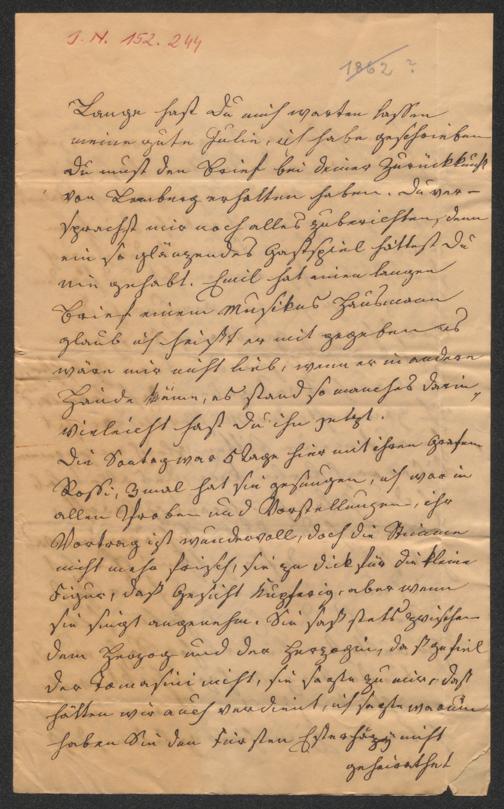 J. N. 152.244
1862 ?
Lange hast Du mich warten lassen
meine gute Julie, ich habe geschrieben
Du must den Brief bei deiner Zurückkunft
von Lemberg erhalten haben. Du ver-
sprachst mir noch alles zuberichten, denn
ein so glänzendes Gastspiel hättest Du
nie gehabt. Emil hat einen langen
Brief einem Musikus Hausmann
glaub ich heißt er mit gegeben es
wäre mir nicht lieb, wenn er in andere
Hände käme, es stand so manches darin,
vieleicht hast Du ihn jetzt.
Die Sontag war 8 Tage hier mit ihren Grafen
Rossi, 3 mal hat sie gesungen, ich war in
allen Proben und Vorstellungen, ihr
Vortrag ist wundervoll, doch die Stimme
nicht mehr frisch, sie zu dick für die kleine
Figur, daß Gesicht kupferig, aber wenn
sie singt angenehm. Sie saß stets zwischen
dem Herzog und der Herzogin, daß gefiel
der Tomasini nicht, sie sagte zu mir, daß
hätten wir auch verdient, ich sagte warum
haben Sie den Fürsten Esterhazy nicht
geheirathet